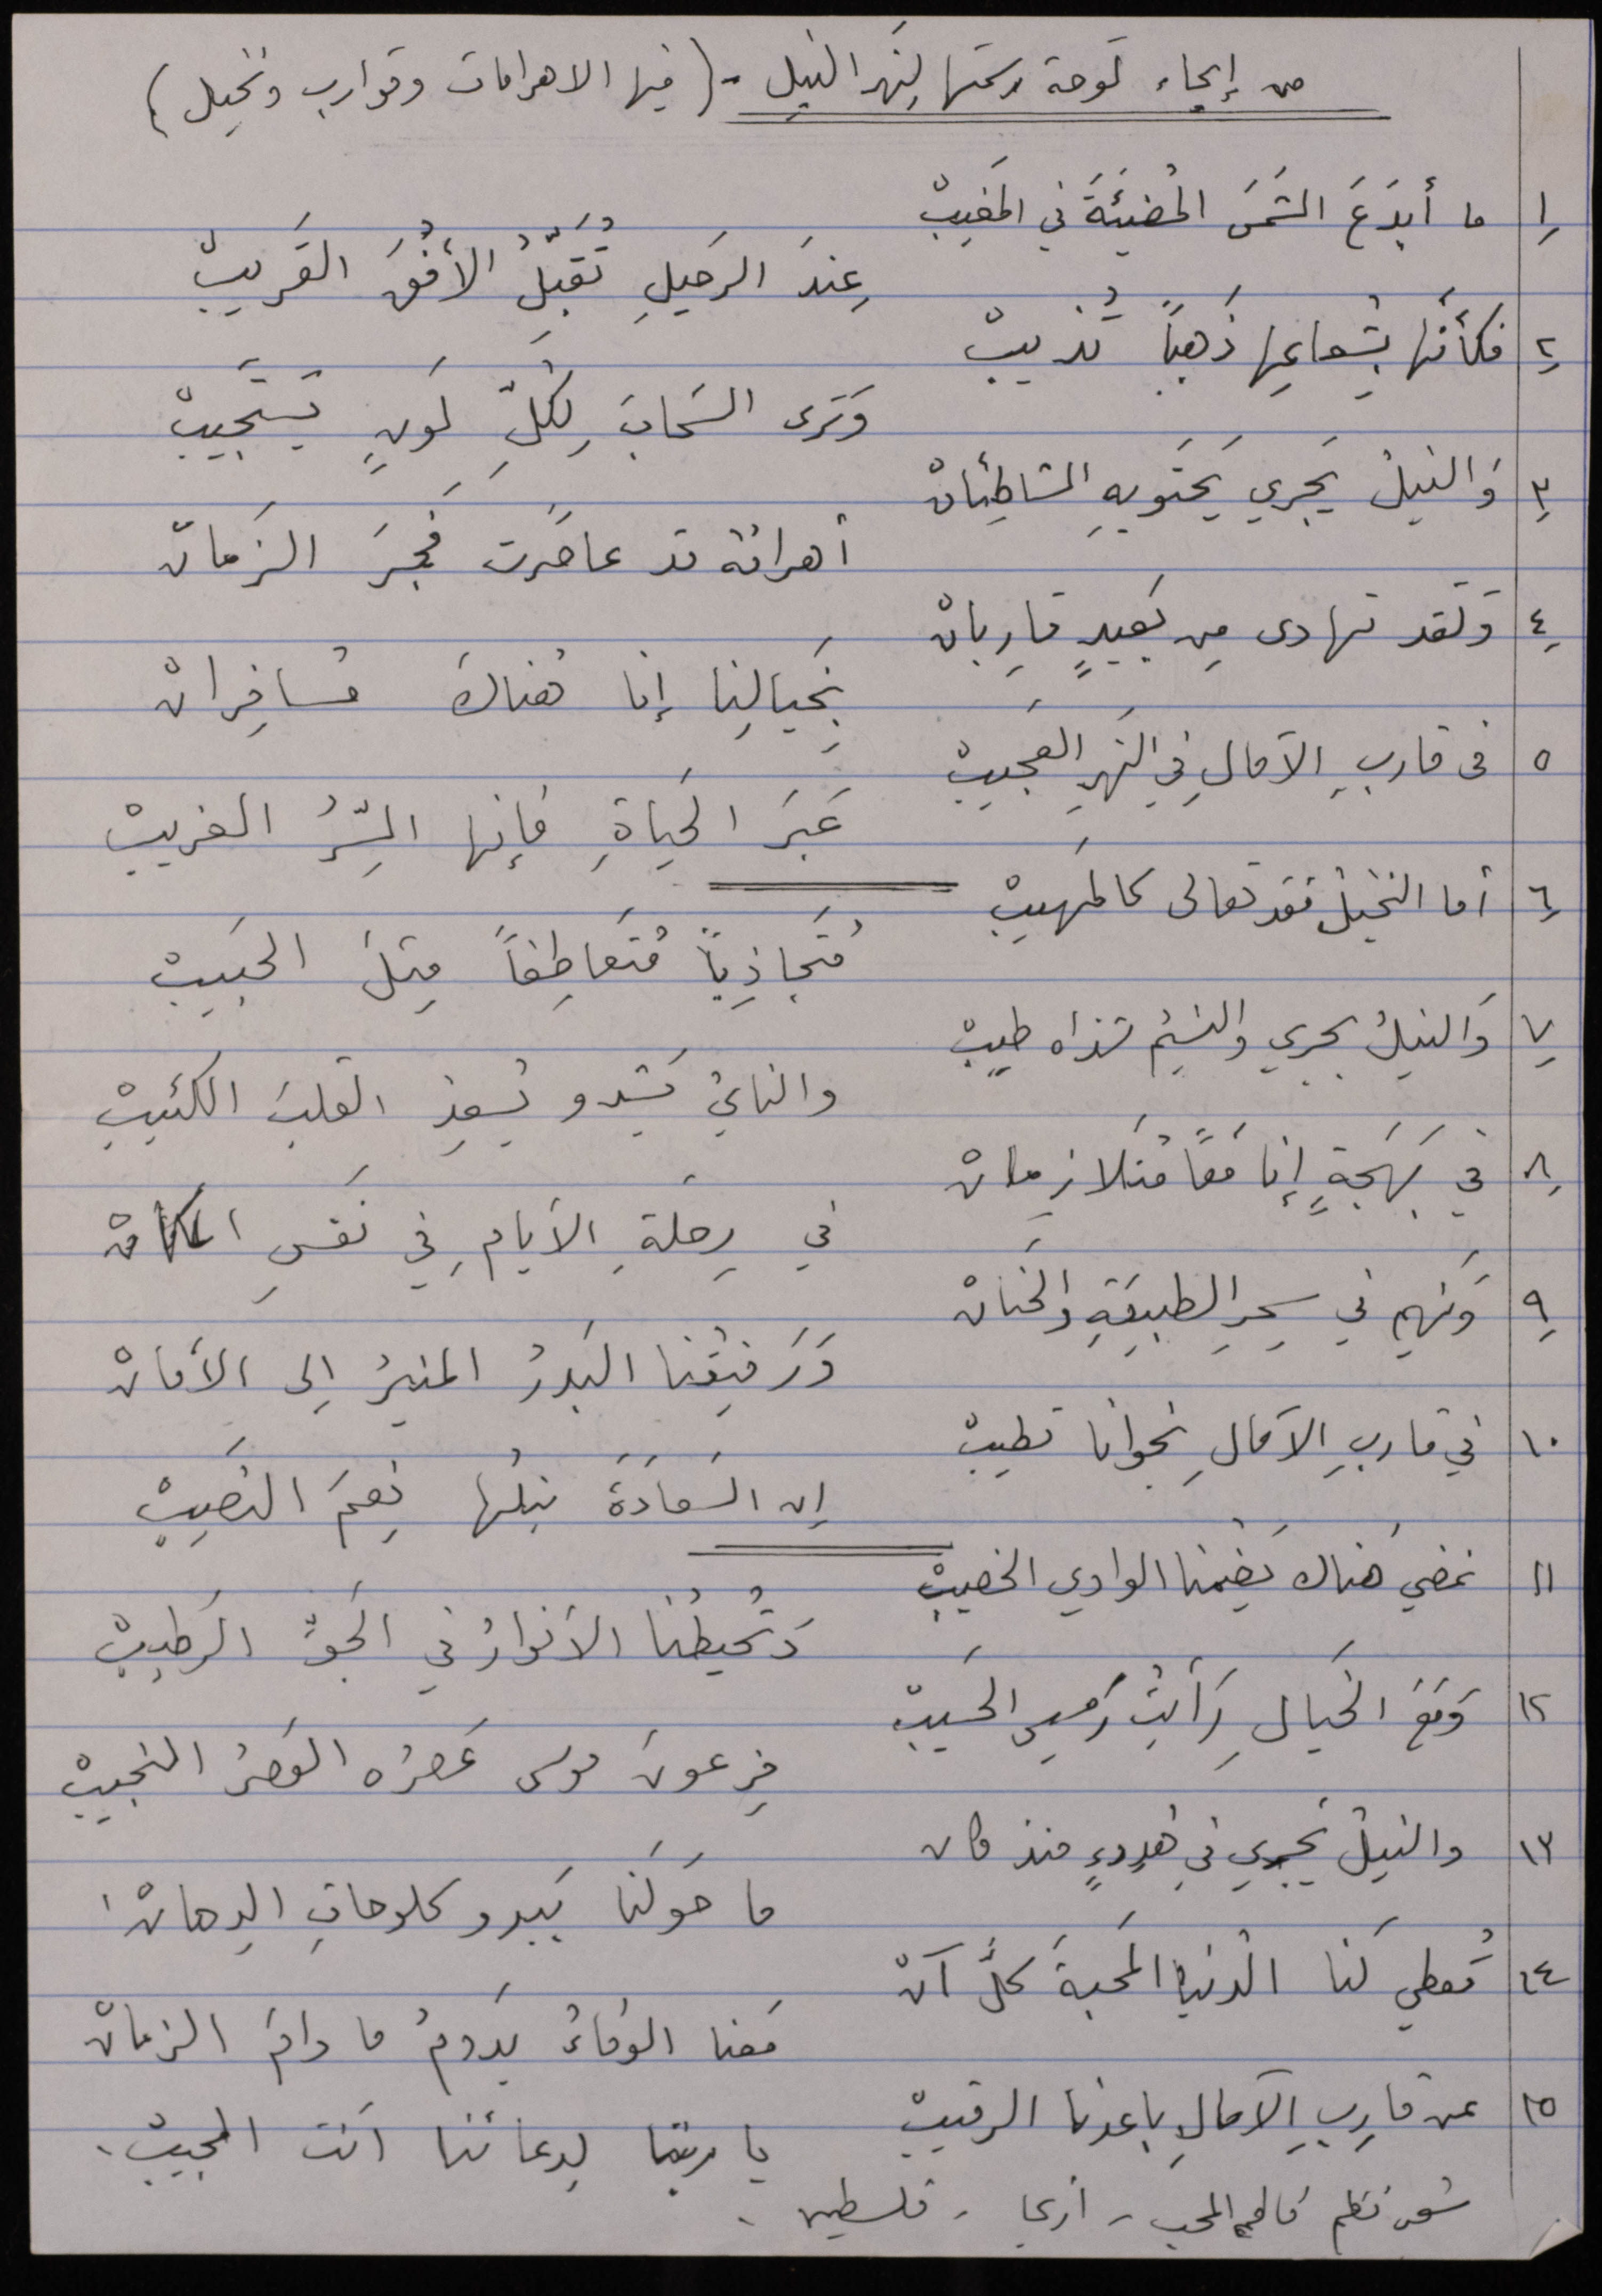 من إيحاء لَوحة رسمتها لِنَهر النيلِ - (فيها الاهرامات وقوارب ونخيل)
١ ما أبدَعَ الشَمسَ المُضيئَةَ في المَغيبْ
عِندَ الرَحيلِ تُقَبِّلُ الأُفُقَ القَريبْ
٢ فكأنّها بِشُعاعِها ذَهباً تُذيبْ
وَترى السَحابَ لِكُلِّ لَونٍ يَستَجيبْ
٣ وَالنيلُ يَجري يَحتَويهِ الشاطِئانْ
أهرامُهُ قد عاصَرَت فَجرَ الزَمانْ
٤ وَلَقد تهادى مِن بَعيدٍ قارِبانْ
بِخَيالِنا إنا هُناكَ مُسافِرانْ
٥ في قاربِ الآمالِ في النَهرِ العَجيبْ
عَبرَ الحَياةِ فإنها السِّرُ الغريبْ
٦ أما النَخيلُ فقد تعالى كالمَهيبْ
مُتَجاذِباً مُتَعاطِفاً مِثلَ الحَبيبْ
٧ وَالنيلُ يجري والنسيمُ شذاه طيبْ
والنايُ يَشدو يُسعِدُ القلبَ الكئيبْ
٨ في بَهجَةٍ إنا مَعًا مُتَلازِمانْ
في رِحلَةِ الأيامِ في نَفسِ المكانْ
٩ وَنهيم في سِحرِ الطبيعَةِ والحَنانْ
وَرَفيقُنا البَدرُ المنيرُ إلى الأمانْ
١٠ في قاربِ الآمالِ نجوانا تطيبْ
إن السَعادَةَ نيلُها نِعمَ النَصيبْ
١١ نمضي هُناك يَضمنا الوادي الخصيبْ
وَتُحيطُنا الأنوارُ في الجَوِّ الرَطيبْ
١٢ وَمَعَ الخَيالِ رَأَيتُ رَمسيس الحَسيبْ
فِرعونَ موسى عَصرُه العَصرُ النَجيبْ
١٣ والنيلُ يَجري في هُدوءٍ منذ كان
ما حَولَنا يَبدو كلوحاتِ الدِهانْ!
١٤ تُعطي لَنا الدُنيا المَحَبةَ كلَّ آنْ
مَعنا الوَفاءُ يَدومُ ما دامَ الزمانْ
١٥ عن قارِبِ الآمالِ باعدنا الرقيبْ
يا ربنا لِدعائنا أنت المجيبْ.
شعر نظم المحب - أريحا - فلسطين.